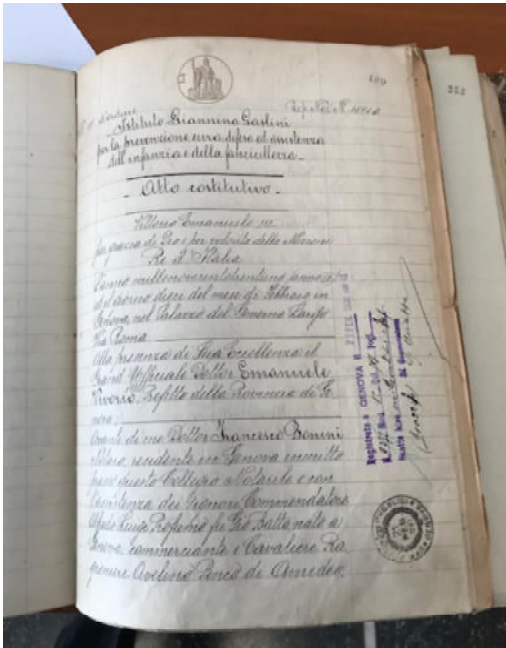 Istituto Giannina Gaslini
per la prevenzione cura difesa ed assistenza
dell'infanzia e della fanciullezza
Atto costitutivo
Vittorio Emanuele III
per grazia di Dio e per volontà della Nazione
Re d'Italia
L'anno millenovecentotrentuno anno
ed il giorno dieci del mese di Febbraio in
Genova, nel Palazzo del Governo Largo
Via Roma
Alla presenza di Sua Eccellenza il
Grand'Ufficiale Dottor Emanuele
Vivorio, Prefetto della Provincia di Ge
nova
Avanti di me Dottor Francesco Bonini
Notaro residente in Genova inscritto
presso questo Collegio Notarile e con
l'assistenza dei Signori Commendatore
Luigi Profumo fu Gio Batta nato a
Genova, commerciante e Cavaliere Ra
gioniere Avelino Ponco di Amedeo,
Registrato a GENOVA
353